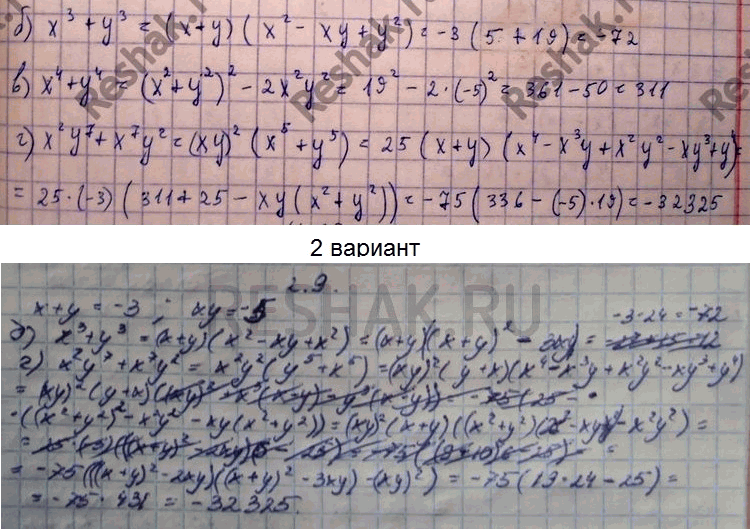 б) x³ + y³ = (x+y) (x² - xy + y²) = -3 (5 + 19) = -72
в) x⁴ + y⁴ = (x² + y²)² - 2x²y² = 19² - 2·(-5)² = 361 - 50 = 311
г) x²y⁷ + x⁷y² = (xy)² (x⁵ + y⁵) = 25 (x+y) (x⁴ - x³y + x²y² - xy³ + y⁴) =
= 25·(-3) (311 + 25 - xy (x² + y²)) = -75 (336 - (-5)·19) = -32325
2 вариант
с.9.
x+y = -3 ; xy = -5
-3·24 = -72
б) x³ + y³ = (x+y)(x² - xy + x²) = (x+y)((x+y)² - 3xy) =
г) x²y⁷ + x⁷y² = x²y²(y⁵ + x⁵) = (xy)²(y+x)(x⁴ - x³y + x²y² - xy³ + y⁴)
= (xy)²(y+x)
·((x²+y²)² - x²y² - xy(x²+y²)) = (xy)²(x+y)((x²+y²)(x² - xy + y²) - x²y²) =
=
= -75(((x+y)² - 2xy)((x+y)² - 3xy) - (xy)²) = -75(19·24 - 25) =
= -75·431 = -32325.
RESHAK.RU
Reshak.ru